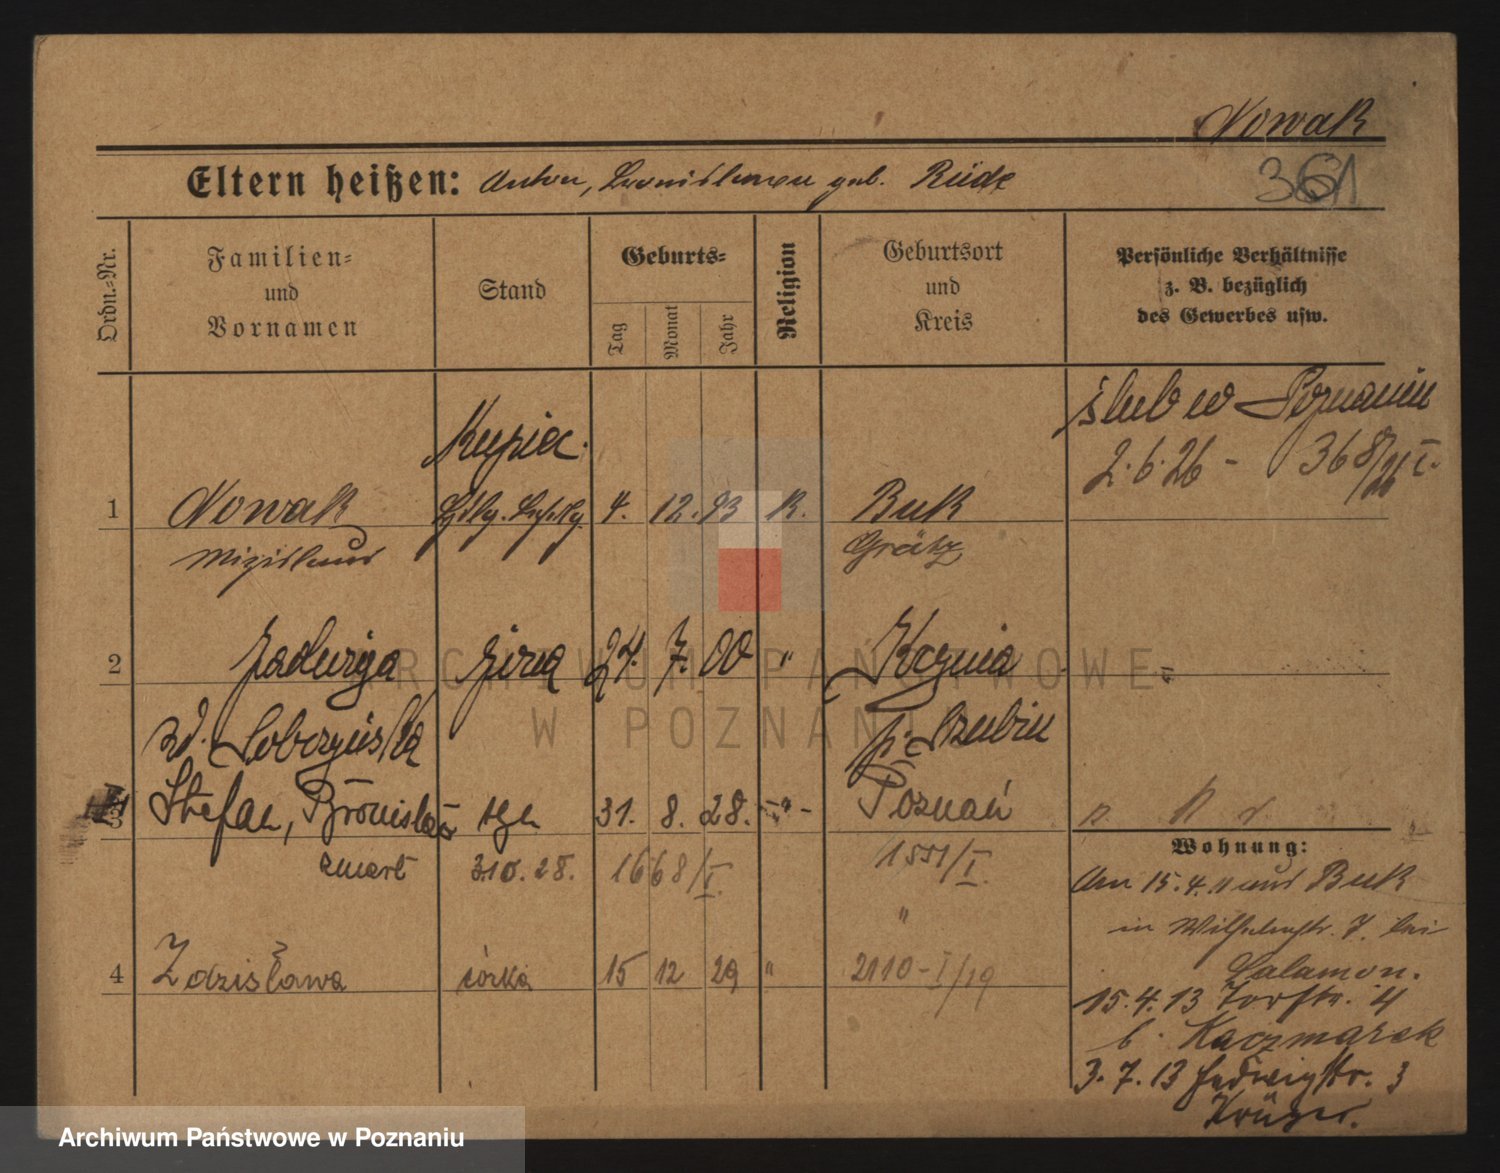 Nowak
Eltern heißen: Anton, Bronislawa geb. Rüde
361
Ordn.-Nr.
Familien- und Vornamen
Stand
Geburts-
Tag
Monat
Jahr
Religion
Geburtsort und Kreis
Persönliche Verhältnisse z. B. bezüglich des Gewerbes usw.
ślub w Poznaniu
2.6.26 - 368/26 I.
Kupiec
1 Nowak 4. 12. 93 K. Buk
Grätz
2 Jadwiga żona 24. 7. 00 " Kcynia
zd. Sobczyńska p. Szubin
3 Stefan, Bronisław syn 31. 8. 28. -"- Poznań
zmarł 3.10.28. 1668/I. 1551/I.
"
4 Zdzisława córka 15 12 29 " 2110-I/19
Wohnung:
Am 15.4. aus Buk
in Wilhelmstr. 7. bei
Salamon.
15.4.13 Torstr. 4
b. Kaczmarek
3.7.13 Hedwigstr. 3
Krüger.
ARCHIWUM PAŃSTWOWE
W POZNANIU
Archiwum Państwowe w Poznaniu